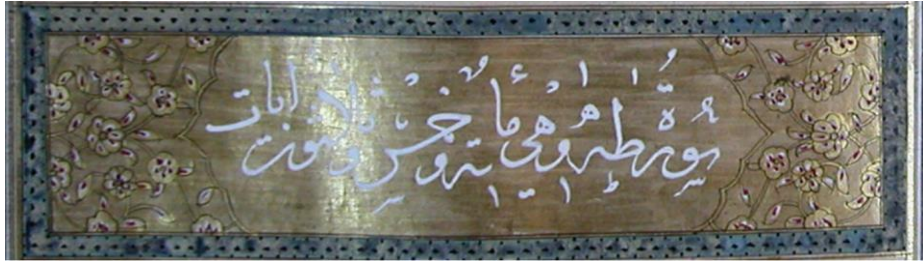 سورة طه وهي مائة وخمس وثلاثون آيات